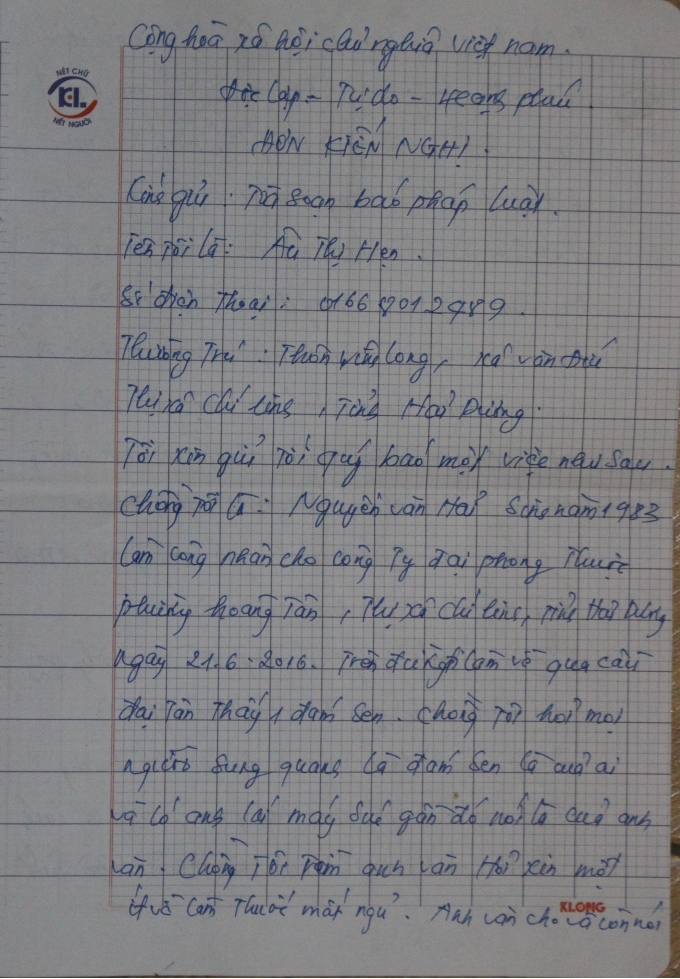 Cộng hoà xã hội chủ nghĩa việt nam.
NÉT CHỮ
KL
NẾT NGƯỜI
Độc lập - Tự do - Hạnh phúc.
ĐƠN KIẾN NGHỊ.
Kính gửi: Toà soạn báo pháp luật.
Tên tôi là: Âu Thị Hẹn.
Số điện thoại: 01668012989.
Thường Trú: Thôn Vĩnh Long, xã văn Đức
Thị xã Chí linh, Tỉnh Hải Dương.
Tôi xin gửi tới quý báo một việc như sau.
Chồng tôi là: Nguyễn văn Hải Sinh năm 1983
làm công nhân cho công Ty đại phong Thuộc
phường hoàng Tân, Thị xã chí linh, tỉnh Hải Dương
ngày 21.6.2016. Trên đường làm về qua cầu
đại Tân Thấy 1 đám sen. Chồng tôi hỏi mọi
người sung quanh là đám sen là của ai
và có anh lái máy súc gần đó nói là của anh
văn. Chồng Tôi Tìm anh văn Hỏi xin một
ít về làm Thuốc mất ngủ. Anh văn cho và còn nói
KLONG